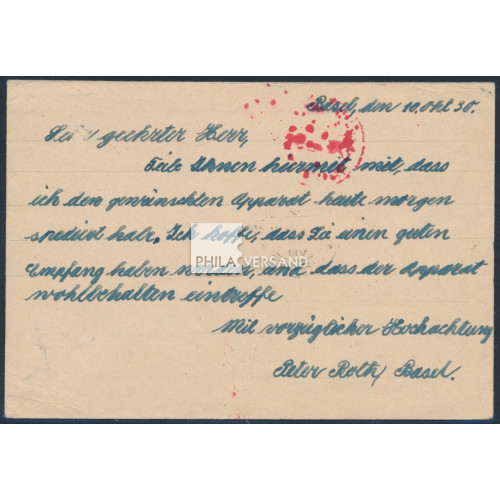 Basel, den 10. Okt 30.
Sehr geehrter Herr,
Teile Ihnen hiermit mit, dass
ich den gewünschten Apparat heute morgen
spediert habe. Ich hoffe, dass Sie einen guten
Empfang haben werden, und dass der Apparat
PHILA VERSAND
wohlbehalten eintreffe
Mit vorzüglicher Hochachtung
Peter Roth, Basel.